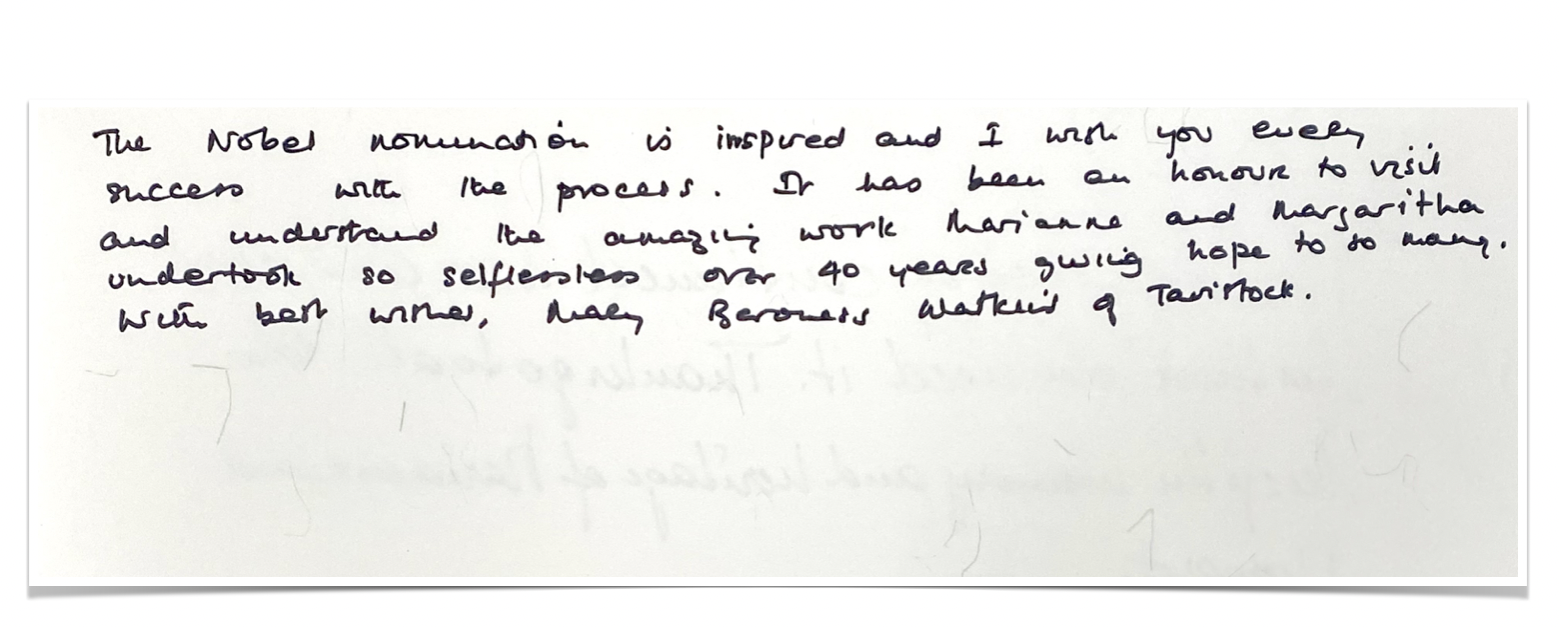 The Nobel nomination is inspired and I wish you every
success with the process. It has been an honour to visit
and understand the amazing work Marianne and Margaritha
undertook so selflessless over 40 years giving hope to so many.
With best wishes, Mary Baroness Watkins of Tavistock.